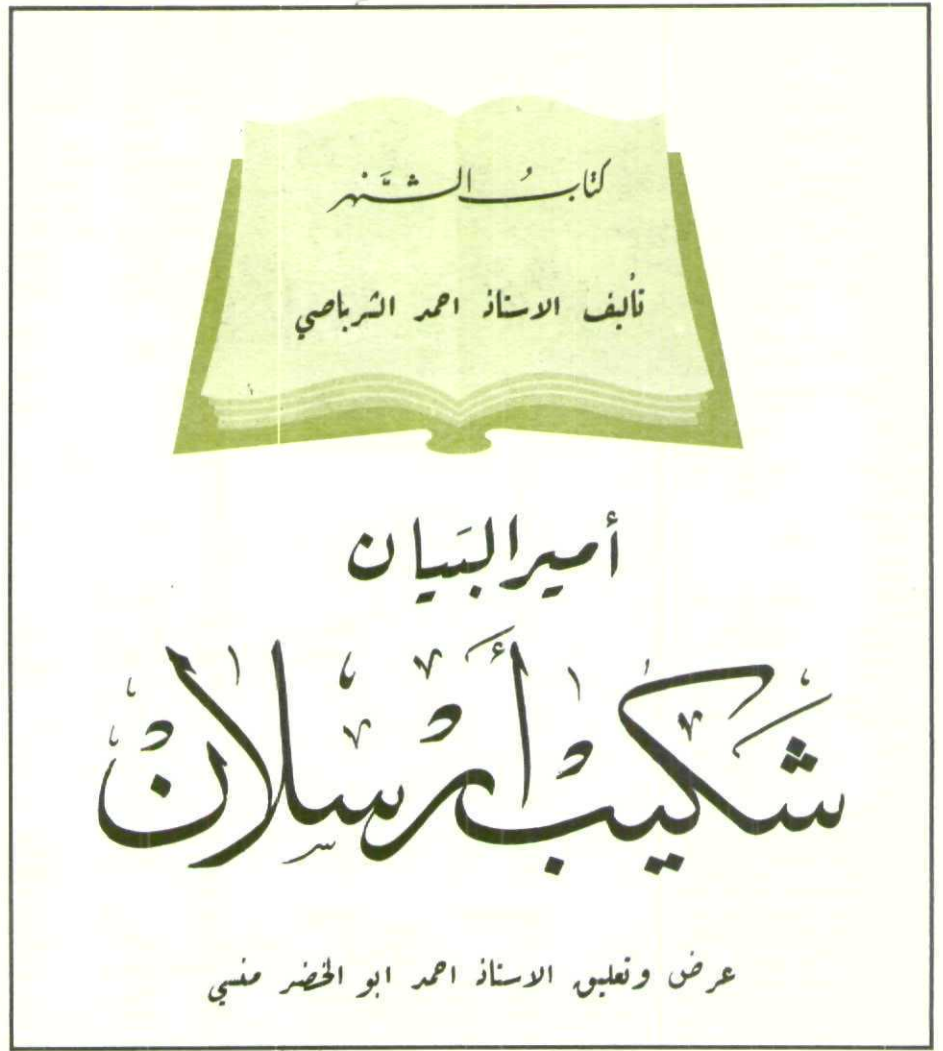 كتابُ الشَّهر
تأليف الاستاذ احمد الشرباصي
أمير البَيان
شكيبْ أرْسلانْ
عرض وتعليق الاستاذ احمد ابو الخضر منسي